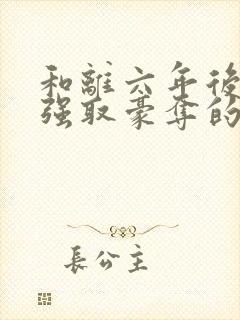 和離六年後
强取豪奪的
長公主